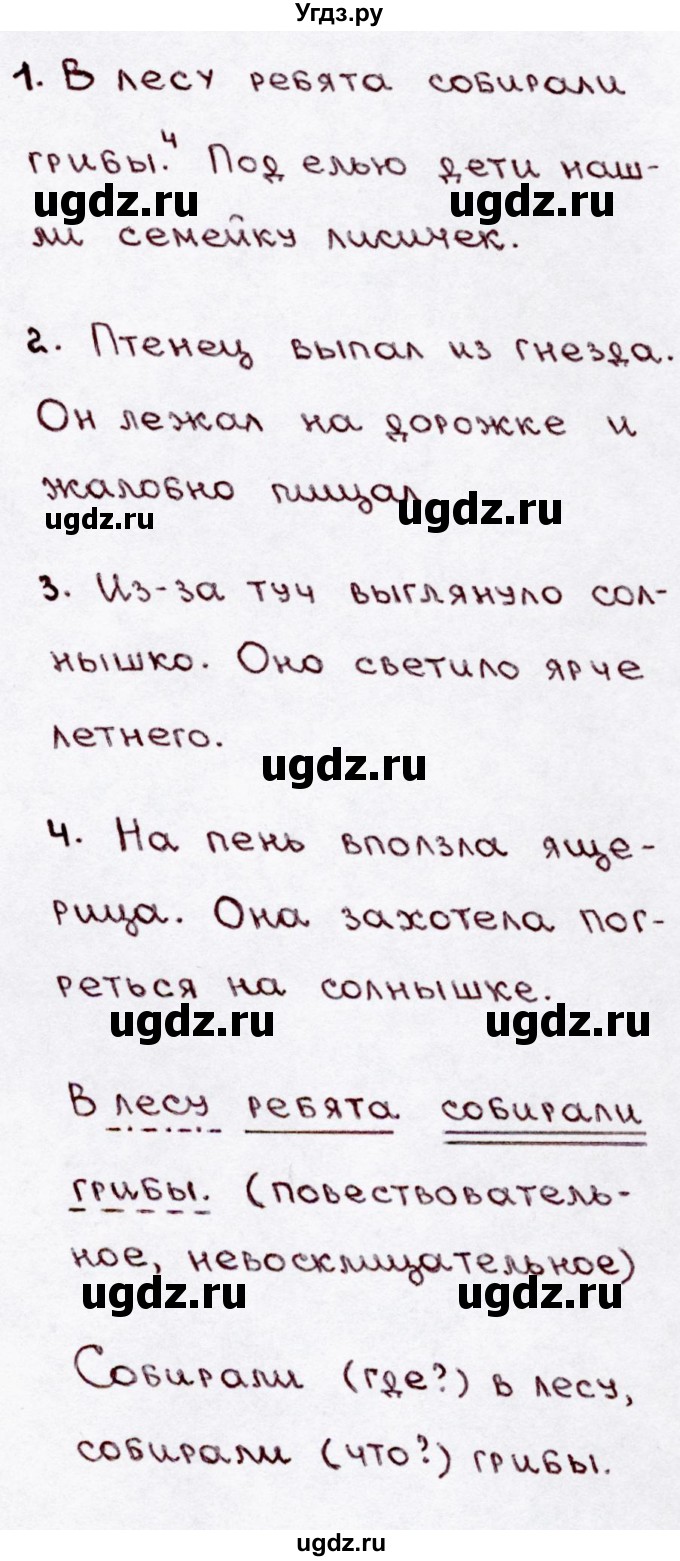 Угдз.ру
1. В лесу ребята собирали
грибы.⁴ Под елью дети наш-
ugdz.ru ugdz.ru
ли семейку лисичек.
2. Птенец выпал из гнезда.
Он лежал на дорожке и
жалобно пищал
ugdz.ru ugdz.ru
3. Из-за туч выглянуло сол-
нышко. Оно светило ярче
летнего.
ugdz.ru
4. На пень вползла яще-
рица. Она захотела пог-
реться на солнышке.
ugdz.ru ugdz.ru
В лесу ребята собирали
грибы. (повествователь-
ное, невосклицательное)
ugdz.ru ugdz.ru
Собирали (где?) в лесу,
собирали (что?) грибы.
ugdz.ru